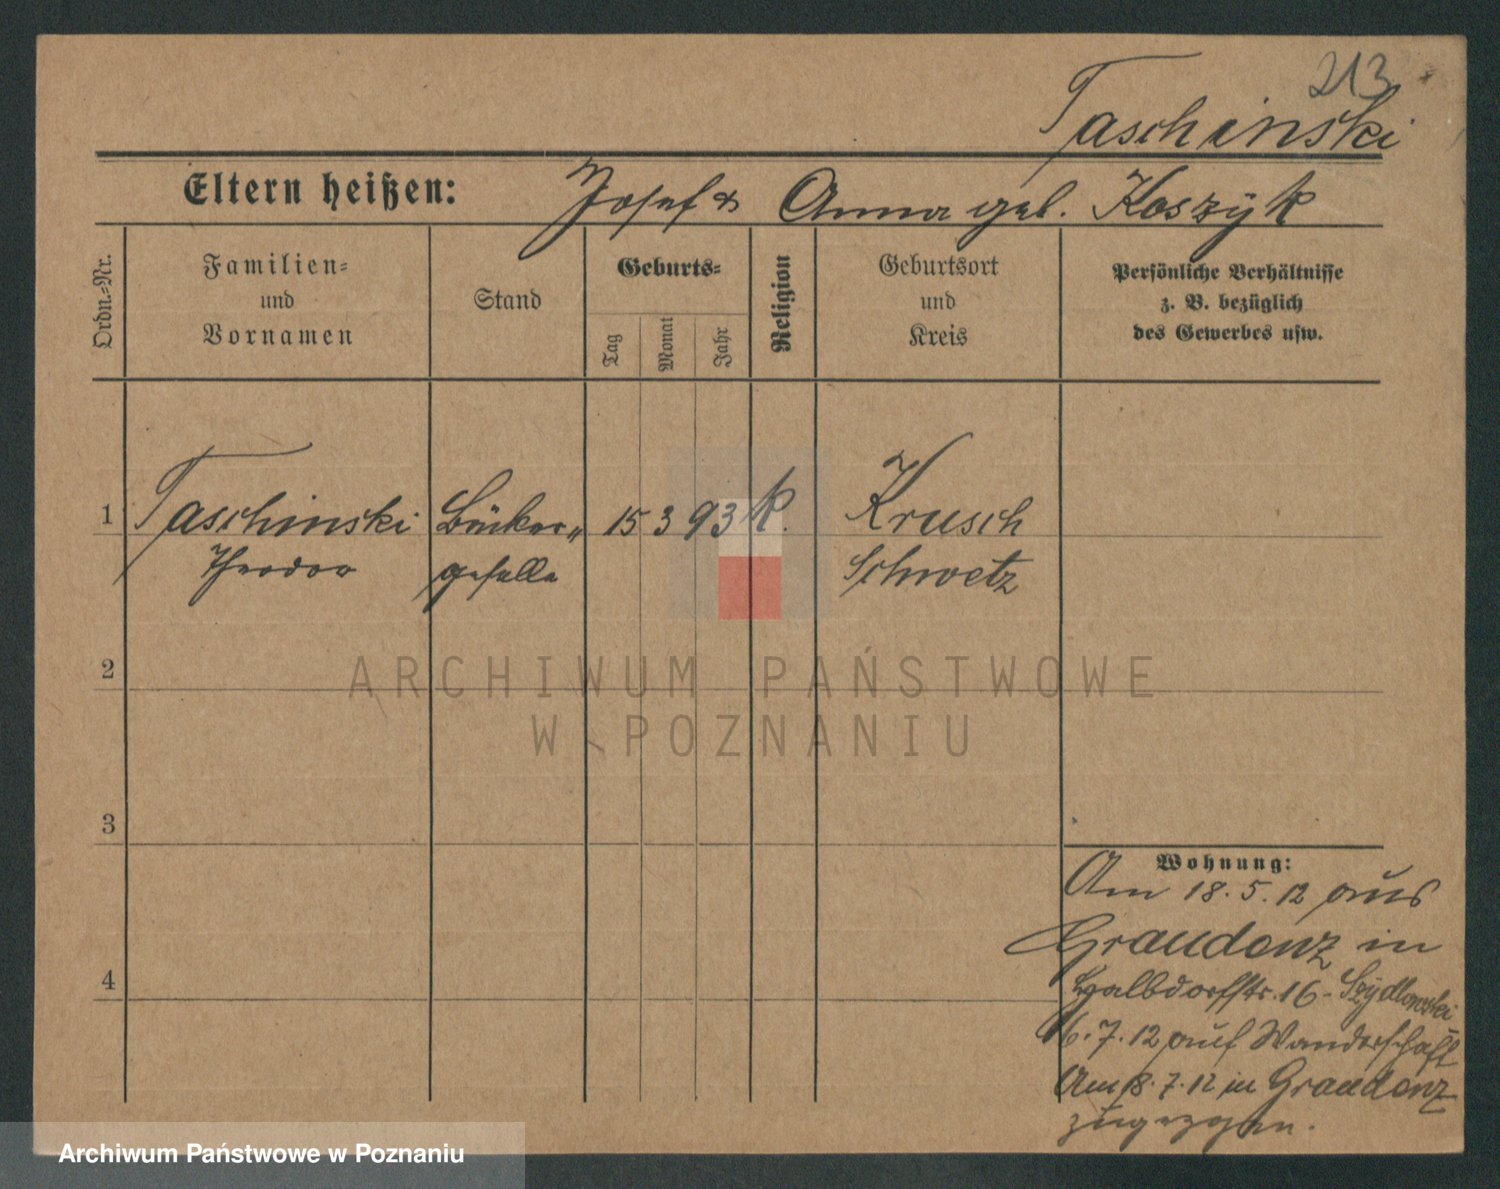 213
Taschinski
Eltern heißen: Josef & Anna geb. Koszyk
Ordn.-Nr.
Familien-
und
Vornamen
Stand
Geburts-
Tag
Monat
Jahr
Religion
Geburtsort
und
Kreis
Persönliche Verhältnisse
z. B. bezüglich
des Gewerbes usw.
1 Taschinski Bäcker„ 15 3 93 k. Krusch
Theodor geselle Schwetz
2
ARCHIWUM PAŃSTWOWE
W POZNANIU
3
Wohnung:
Am 18.5.12 aus
Graudenz in
Halbdorfstr. 16 - Szydlowski
6.7.12 auf Wanderschaft
4
Am 8.7.12 in Graudenz
zugezogen.
Archiwum Państwowe w Poznaniu